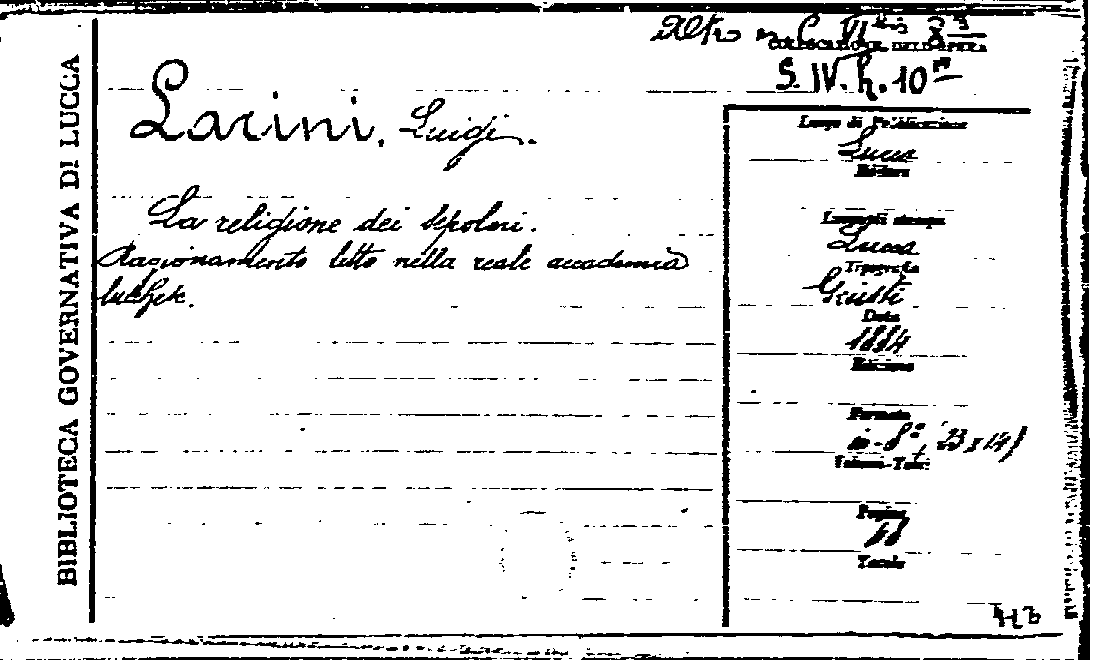 BIBLIOTECA GOVERNATIVA DI LUCCA
Altro
COLLOCAZIONE DELL'OPERA
S. IV. h. 10
Larini, Luigi.
La religione dei sepolcri.
Ragionamento letto nella reale accademia
lucchese.
Luogo di Pubblicazione
Lucca
Editore
Luogo di stampa
Lucca
Tipografia
Giusti
Data
1884
Edizione
Formato
in-8°, 23 x 14
Volumi-Tomi
Pagine
Tavole